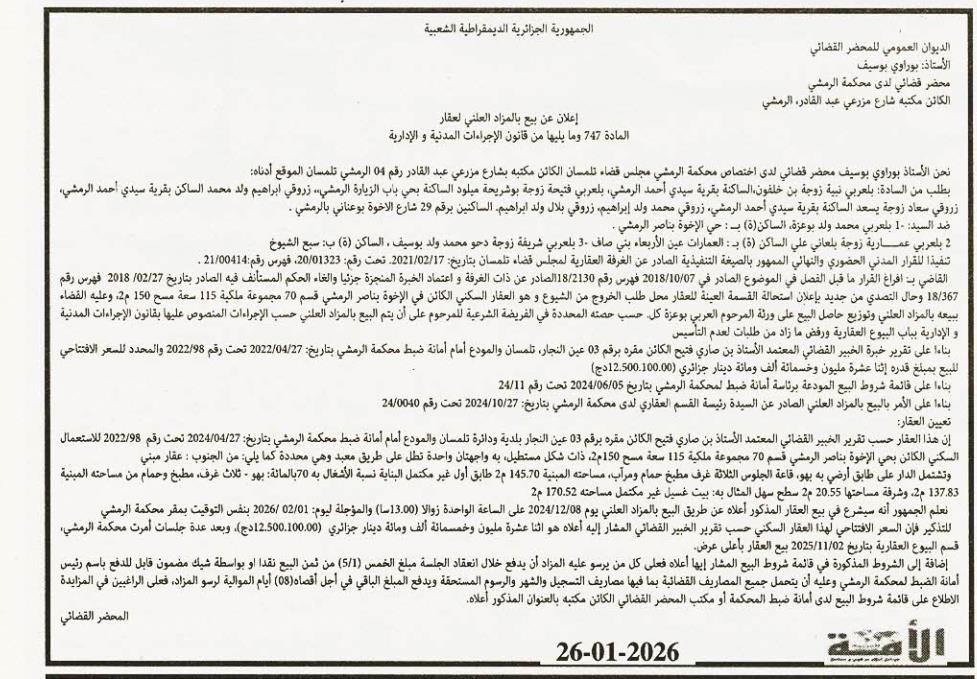 الجمهورية الجزائرية الديمقراطية الشعبية
الديوان العمومي للمحضر القضائي
الأستاذ: بوراوي بوسيف
محضر قضائي لدى محكمة الرمشي
الكائن مكتبه شارع مزرعي عبد القادر، الرمشي
إعلان عن بيع بالمزاد العلني لعقار
المادة 747 وما يليها من قانون الإجراءات المدنية و الإدارية
نحن الأستاذ بوراوي بوسيف محضر قضائي لدى اختصاص محكمة الرمشي مجلس قضاء تلمسان الكائن مكتبه بشارع مزرعي عبد القادر رقم 04 الرمشي تلمسان الموقع أدناه:
بطلب من السادة: بلعربي نبية زوجة بن خلفون،الساكنة بقرية سيدي أحمد الرمشي، بلعربي فتيحة زوجة بوشريحة ميلود الساكنة بحي باب الزيارة الرمشي،، زروقي ابراهيم ولد محمد الساكن بقرية سيدي أحمد الرمشي،
زروقي سعاد زوجة يسعد الساكنة بقرية سيدي أحمد الرمشي، زروقي محمد ولد إبراهيم، زروقي بلال ولد ابراهيم. الساكنين برقم 29 شارع الاخوة بوعناني بالرمشي .
ضد السيد: 1- بلعربي محمد ولد بوعزة، الساكن(ة) بـ : حي الإخوة بناصر الرمشي .
2 بلعربي عمـــارية زوجة بلعاني علي الساكن (ة) بـ : العمارات عين الأربعاء بني صاف 3- بلعربي شريفة زوجة دحو محمد ولد بوسيف ، الساكن (ة) ب: سبع الشيوخ
تنفيذا للقرار المدني الحضوري والنهائي الممهور بالصيغة التنفيذية الصادر عن الغرفة العقارية لمجلس قضاء تلمسان بتاريخ: 2021/02/17. تحت رقم: 20/01323، فهرس رقم:21/00414.
القاضي بـ: افراغ القرار ما قبل الفصل في الموضوع الصادر في 2018/10/07 فهرس رقم 18/2130الصادر عن ذات الغرفة و اعتماد الخبرة المنجزة جزئيا والغاء الحكم المستأنف فيه الصادر بتاريخ 02/27/ 2018 فهرس رقم
18/367 وحال التصدي من جديد بإعلان استحالة القسمة العينة للعقار محل طلب الخروج من الشيوع و هو العقار السكني الكائن في الإخوة بناصر الرمشي قسم 70 مجموعة ملكية 115 سعة مسح 150 م2، وعليه القضاء
ببيعه بالمزاد العلني وتوزيع حاصل البيع على ورثة المرحوم العربي بوعزة كل. حسب حصته المحددة في الفريضة الشرعية للمرحوم على أن يتم البيع بالمزاد العلني حسب الإجراءات المنصوص عليها بقانون الإجراءات المدنية
و الإدارية بباب البيوع العقارية ورفض ما زاد من طلبات لعدم التأسيس
بناءا على تقرير خبرة الخبير القضائي المعتمد الأستاذ بن صاري فتيح الكائن مقره برقم 03 عين النجار، تلمسان والمودع أمام أمانة ضبط محكمة الرمشي بتاريخ: 2022/04/27 تحت رقم 2022/98 والمحدد للسعر الافتتاحي
للبيع بمبلغ قدره إثنا عشرة مليون وخسمائة ألف ومائة دينار جزائري (12.500.100.00دج)
بناءا على قائمة شروط البيع المودعة برئاسة أمانة ضبط لمحكمة الرمشي بتاريخ 2024/06/05 تحت رقم 24/11
بناءا على الأمر بالبيع بالمزاد العلني الصادر عن السيدة رئيسة القسم العقاري لدى محكمة الرمشي بتاريخ: 2024/10/27 تحت رقم 24/0040
تعيين العقار:
إن هذا العقار حسب تقرير الخبير القضائي المعتمد الأستاذ بن صاري فتيح الكائن مقره برقم 03 عين النجار بلدية ودائرة تلمسان والمودع أمام أمانة ضبط محكمة الرمشي بتاريخ: 2024/04/27 تحت رقم 2022/98 للاستعمال
السكني الكائن بحي الإخوة بناصر الرمشي قسم 70 مجموعة ملكية 115 سعة مسح 150م2، ذات شكل مستطيل، به واجهتان واحدة تطل على طريق معبد وهي محددة كما يلي: من الجنوب : عقار مبني
وتشتمل الدار على طابق أرضي به بهو، قاعة الجلوس الثلاثة غرف مطبخ حمام ومرآب، مساحته المبنية 145.70 م2 طابق أول غير مكتمل البناية نسبة الأشغال به 70بالمائة: بهو - ثلاث غرف، مطبخ وحمام من مساحته المبنية
137.83 م2، وشرفة مساحتها 20.55 م2 سطح سهل المثال به: بيت غسيل غير مكتمل مساحته 170.52 م2
نعلم الجمهور أنه سيشرع في بيع العقار المذكور أعلاه عن طريق البيع بالمزاد العلني يوم 2024/12/08 على الساعة الواحدة زوالا (13.00سا) والمؤجلة ليوم: 02/01 /2026 بنفس التوقيت بمقر محكمة الرمشي
للتذكير فإن السعر الافتتاحي لهذا العقار السكني حسب تقرير الخبير القضائي المشار إليه أعلاه هو اثنا عشرة مليون وخمسمائة ألف ومائة دينار جزائري (12.500.100.00دج)، وبعد عدة جلسات أمرت محكمة الرمشي،
قسم البيوع العقارية بتاريخ 2025/11/02 بيع العقار بأعلى عرض.
إضافة إلى الشروط المذكورة في قائمة شروط البيع المشار إيها أعلاه فعلى كل من يرسو عليه المزاد أن يدفع خلال انعقاد الجلسة مبلغ الخمس (5/1) من ثمن البيع نقدا او بواسطة شيك مضمون قابل للدفع باسم رئيس
أمانة الضبط لمحكمة الرمشي وعليه أن يتحمل جميع المصاريف القضائية بما فيها مصاريف التسجيل والشهر والرسوم المستحقة ويدفع المبلغ الباقي في أجل أقصاه(08) أيام الموالية لرسو المزاد، فعلى الراغبين في المزايدة
الاطلاع على قائمة شروط البيع لدى أمانة ضبط المحكمة أو مكتب المحضر القضائي الكائن مكتبه بالعنوان المذكور أعلاه.
المحضر القضائي
الأمة
26-01-2026